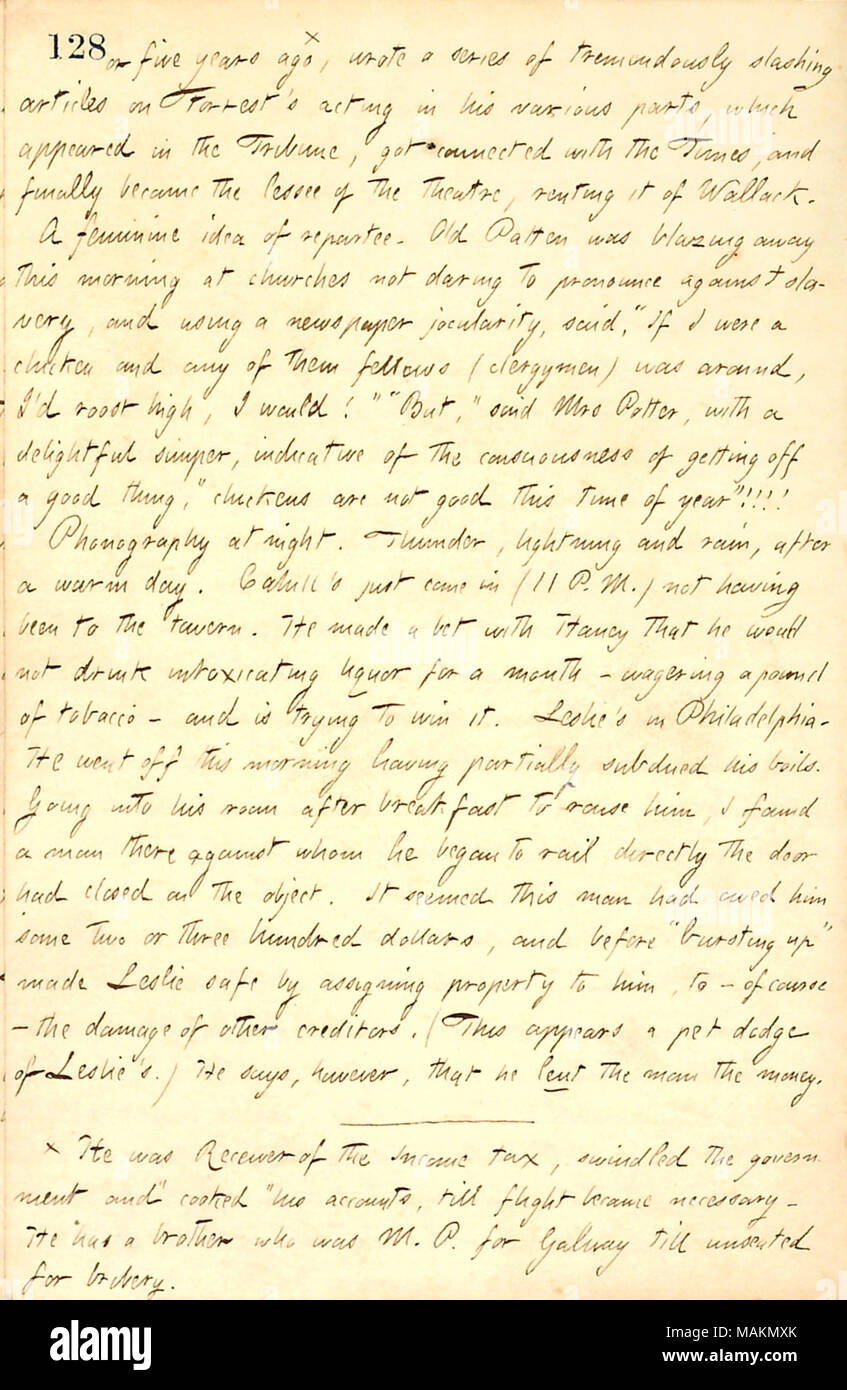 128
or five years ago x, wrote a series of tremendously slashing
articles on Forrest's acting in his various parts, which
appeared in the Tribune, got connected with the Times, and
finally became the lessee of the theatre, renting it of Wallack.
A feminine idea of repartee. Old Patten was blazing away
this morning at churches not daring to pronounce against sla-
very, and using a newspaper jocularity, said, "If I were a
chicken and any of them fellows (clergymen) was around,
I'd roost high, I would!" "But," said Mrs Potter, with a
delightful simper, indicative of the consciousness of getting off
a good thing, "chickens are not good this time of year"!!!!
Phonography at night. Thunder, lightning and rain, after
a warm day. Cahill's just come in (11 P. M.) not having
been to the tavern. He made a bet with Haney that he would
not drink intoxicating liquor for a month – wagering a pound
of tobacco – and is trying to win it. Leslie's in Philadelphia.
He went off this morning having partially subdued his boils.
Going into his room after breakfast to rouse him, I found
a man there against whom he began to rail directly the door
had closed on the object. It seemed this man had owed him
some two or three hundred dollars, and before "bursting up"
made Leslie safe by assigning property to him, to – of course
– the damage of other creditors. (This appears a pet dodge
of Leslie's.) He says, however, that he lent the man the money.
x He was Receiver of the Income tax, swindled the govern-
ment and "cooked" his accounts, till flight became necessary.
He has a brother who was M. P. for Galway till unseated
for bribery.
alamy
Image ID: MAKMXK
www.alamy.com